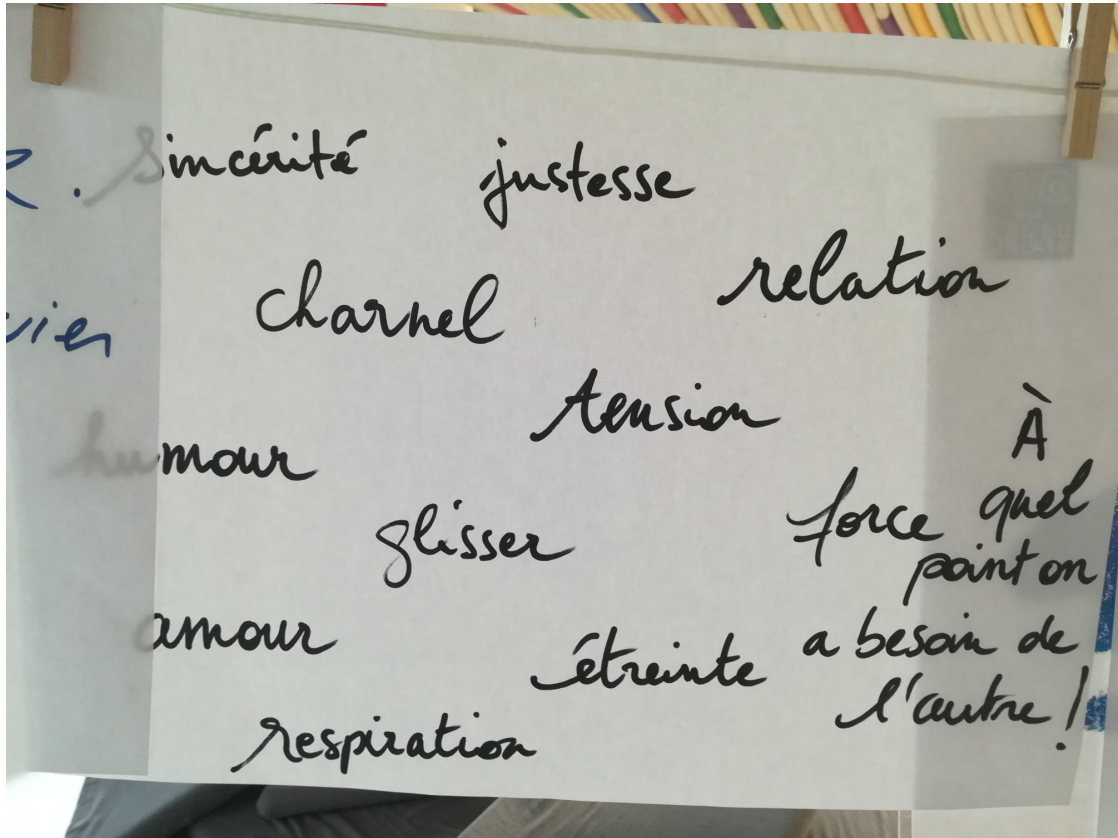 sincérité
justesse
charnel
relation
tension
humour
glisser
force
À
quel
point on
a besoin de
l'autre !
amour
étreinte
respiration